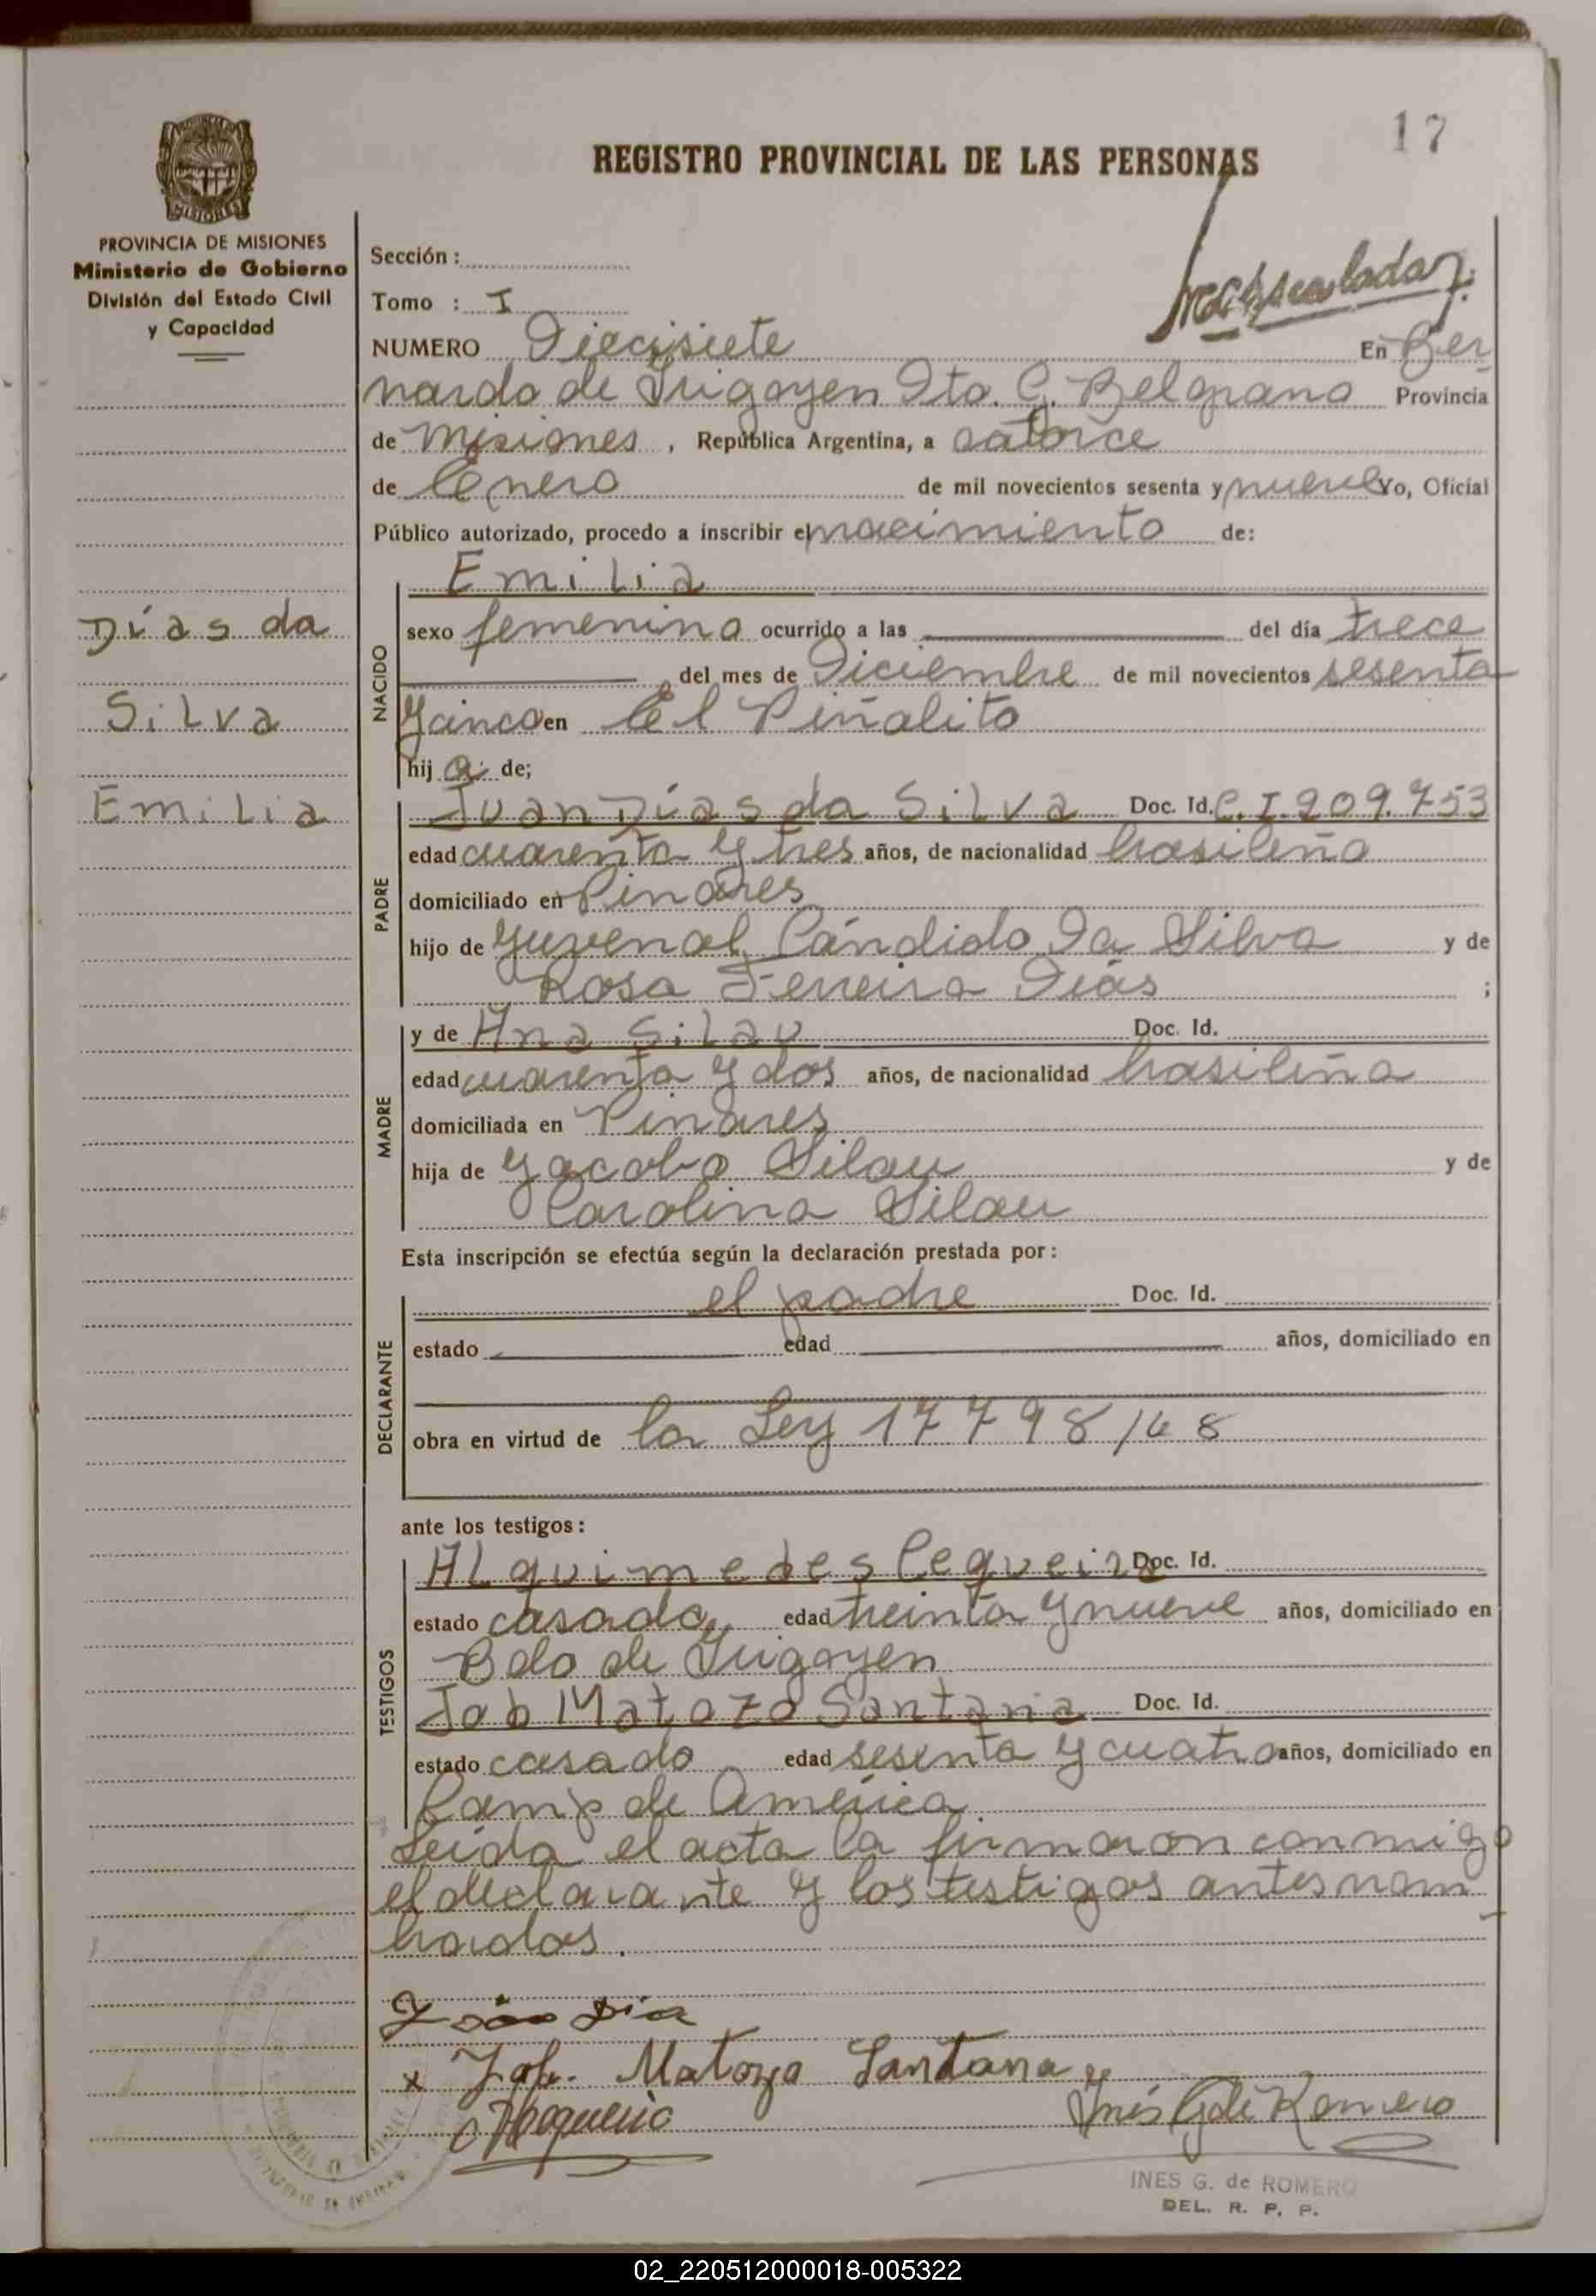 17
REGISTRO PROVINCIAL DE LAS PERSONAS
PROVINCIA DE MISIONES
Ministerio de Gobierno
División del Estado Civil
y Capacidad
Sección :
Tomo : I
NUMERO Diecisiete En Ber
nardo de Irigoyen Dto. G. Belgrano Provincia
de Misiones, República Argentina, a catorce
de Enero de mil novecientos sesenta y nueve Yo, Oficial
Público autorizado, procedo a inscribir el nacimiento de:
Días da
Silva
Emilia
NACIDO
Emilia
sexo femenino ocurrido a las del día trece
del mes de Diciembre de mil novecientos sesenta
y cinco en El Piñalito
hij a de;
PADRE
Juan Días da Silva Doc. Id. C.I. 209.753
edad cuarenta y tres años, de nacionalidad brasileña
domiciliado en Pinares
hijo de Yuvenal Cándido Da Silva y de
Rosa Ferreira Diás ;
MADRE
y de Ana Silau Doc. Id.
edad cuarenta y dos años, de nacionalidad brasileña
domiciliada en Pinares
hija de Yacobo Silau y de
Carolina Silau
Esta inscripción se efectúa según la declaración prestada por :
DECLARANTE
el padre Doc. Id.
estado edad años, domiciliado en
obra en virtud de la Ley 17798/68
ante los testigos :
TESTIGOS
Alquimedes Cequeira Doc. Id.
estado casado edad treinta y nueve años, domiciliado en
Bdo de Irigoyen
Job Matozo Santana Doc. Id.
estado casado edad sesenta y cuatro años, domiciliado en
Camp de América
Leída el acta la firmaron conmigo
el declarante y los testigos antes nom
brados.
João Dia
x Job. Matozo Santana
Inés G de Romero
INES G. de ROMERO
DEL. R. P. P.
02_220512000018-005322